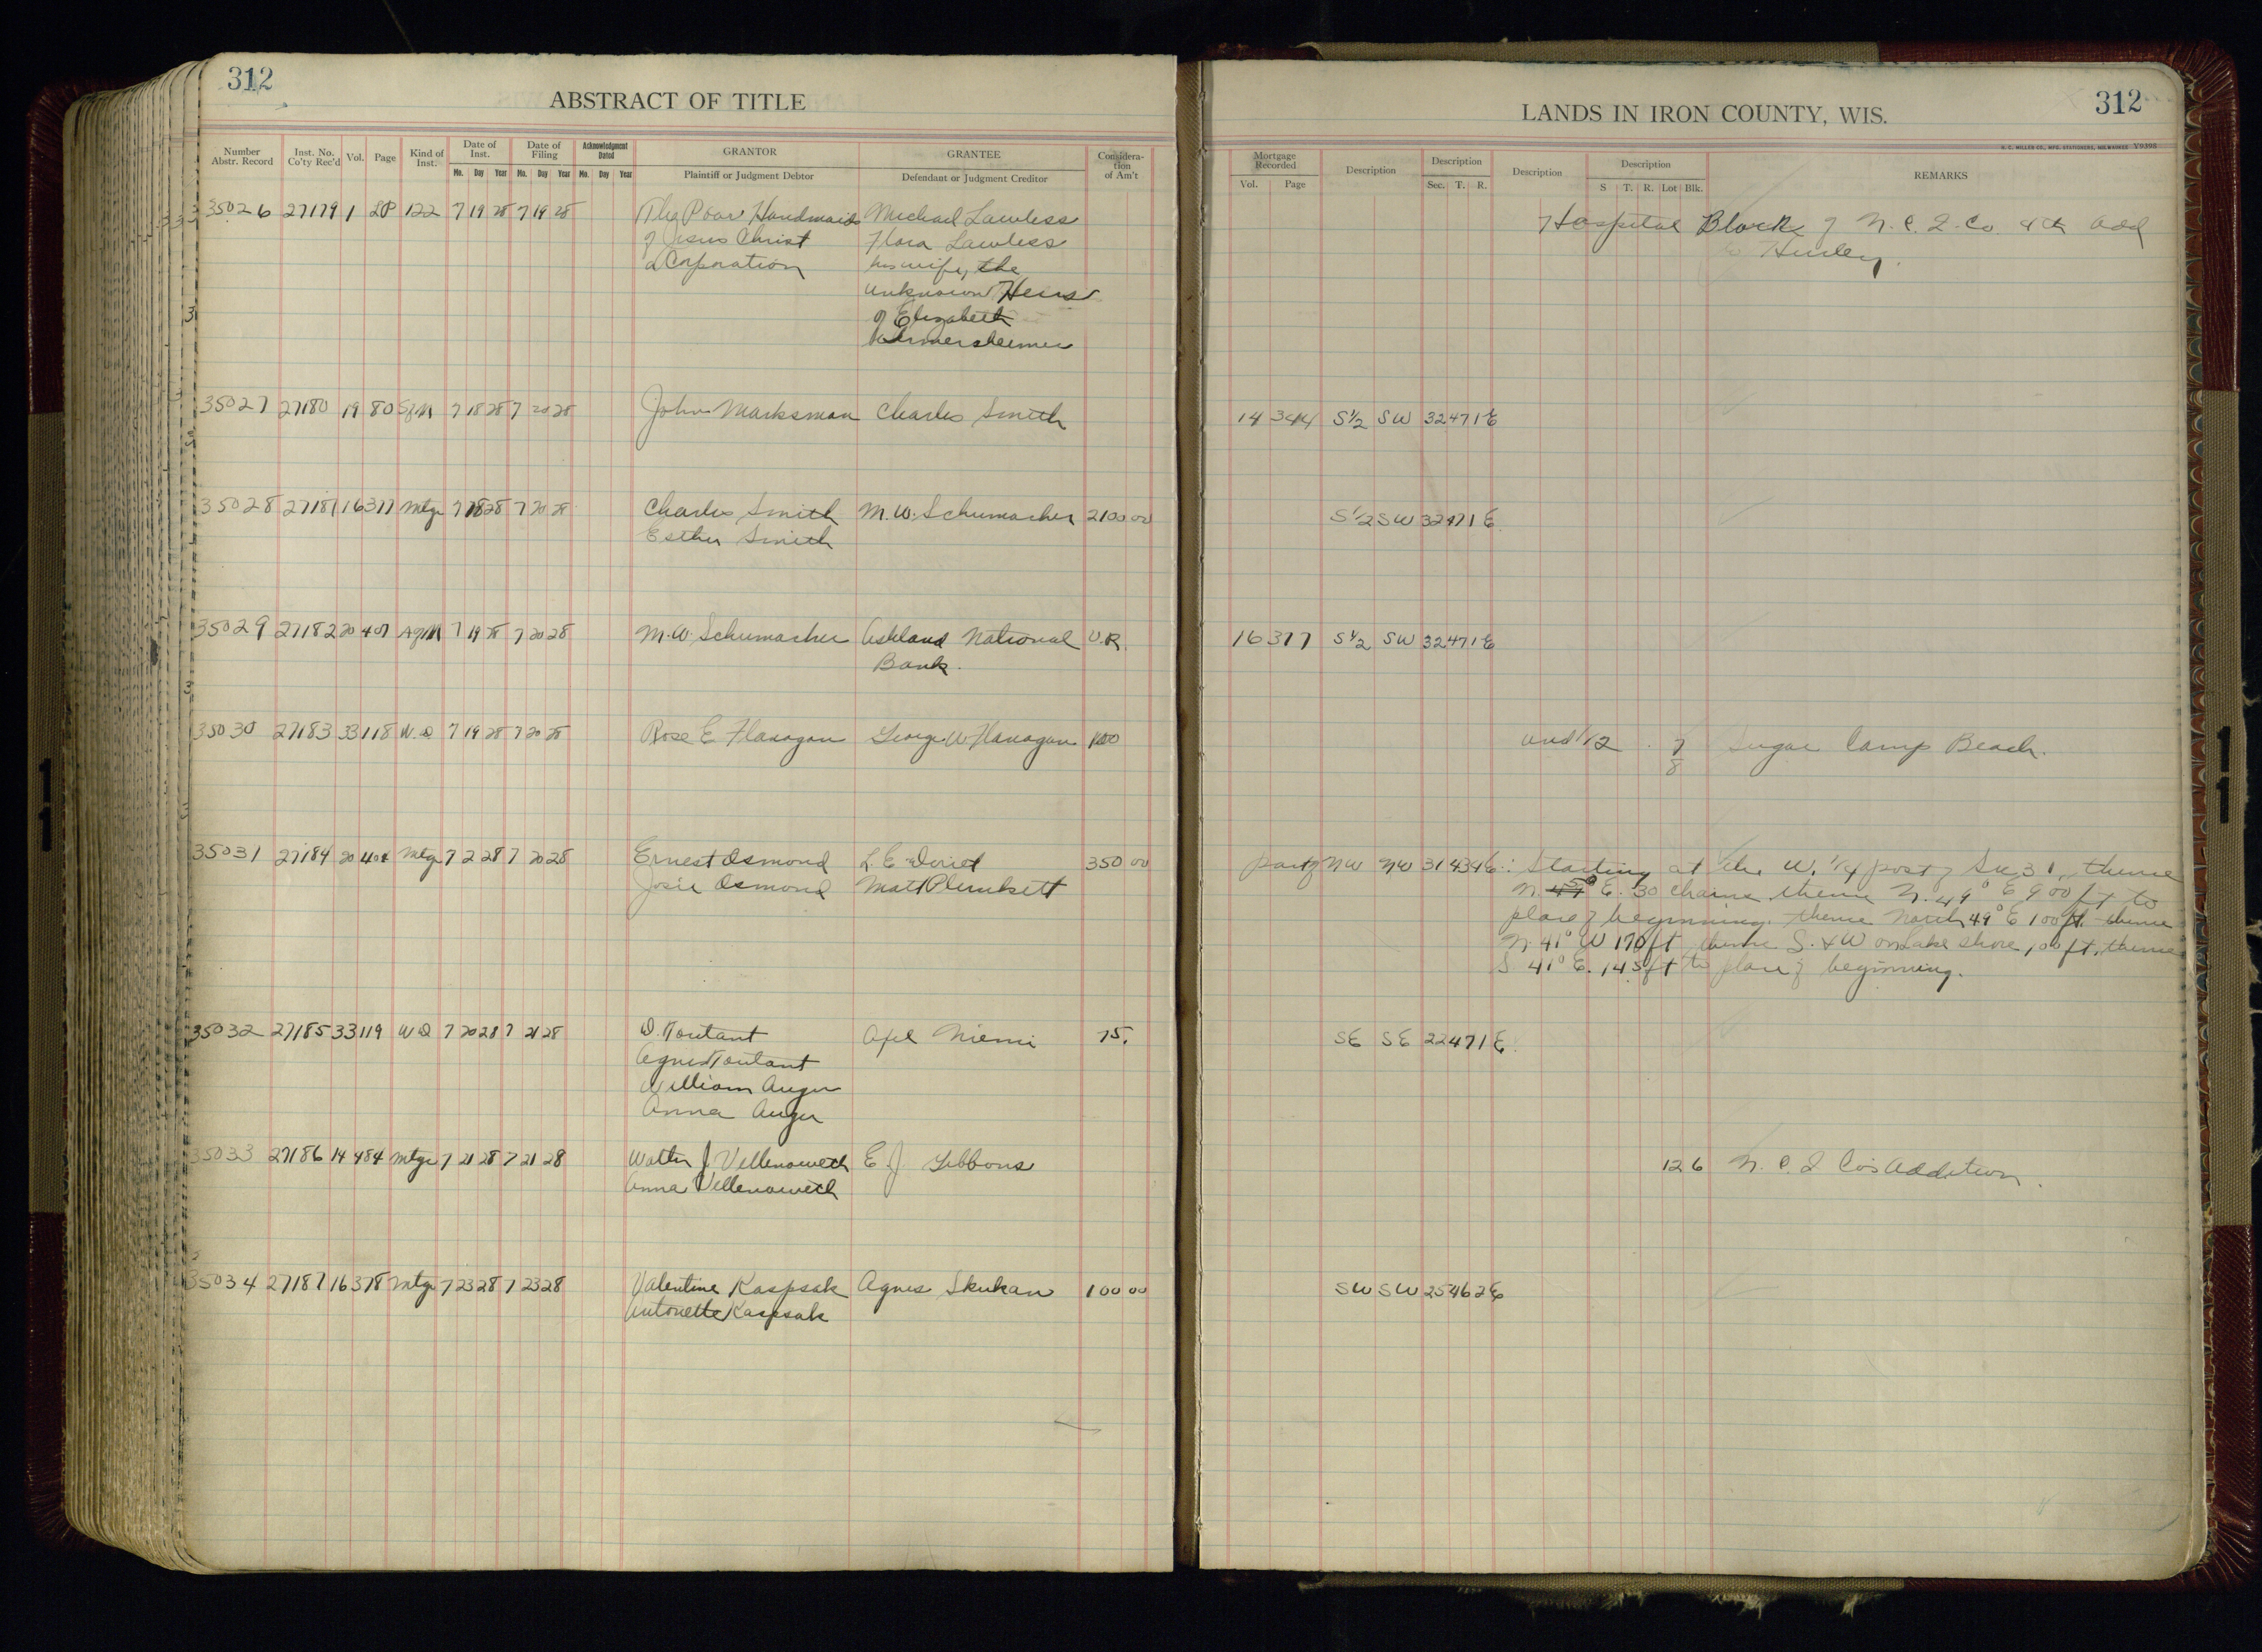 312
ABSTRACT OF TITLE
Number Abstr. Record Inst. No. Co'ty Rec'd Vol. Page Kind of Inst. Date of Inst. Mo. Day Year Date of Filing Mo. Day Year Acknowledgment Dated Mo. Day Year GRANTOR Plaintiff or Judgment Debtor GRANTEE Defendant or Judgment Creditor Considera-tion of Am't
35026 27179 1 LP 122 7 19 28 7 19 28 The Poor Handmaids Michael Lawless
of Jesus Christ Flora Lawless
a Corporation his wife, the
unknown Heirs
of Elizabeth
35027 27180 19 80 SfM 7 18 28 7 20 28 John Marksman Charles Smith
35028 27181 16 377 Mtge 7 18 28 7 20 28 Charles Smith M. W. Schumacher 2100 00
Esther Smith
35029 27182 20 407 AgM 7 19 28 7 20 28 M. W. Schumacher Ashland National V.R.
Bank.
35030 27183 33 118 W.D 7 19 28 7 20 28 Rose E Flanagan George W Flanagan 100
35031 27184 20 408 Mtge 7 2 28 7 20 28 Ernest Osmond L. E. 350 00
Josie Osmond Matt Plunkett
35032 27185 33 119 W D 7 20 28 7 21 28 D. Toutant Axel Niemi 75.
Agnes Toutant
William Auger
Anna Auger
35033 27186 14 484 Mtge 7 21 28 7 21 28 Walter J Villenoweth E J Gibbons
Anna Villenoweth
35034 27187 16 378 Mtge 7 23 28 7 23 28 Valentine Kaspsak Agnes Skukan 100 00
Antonette Kaspsak
312
LANDS IN IRON COUNTY, WIS.
H. C. MILLER CO., MFG. STATIONERS, MILWAUKEE V9398
Mortgage Recorded Vol. Page Description Description Sec. T. R. Description Description S T. R. Lot Blk. REMARKS
Hospital Block of N. C. I. Co. 4th Add
to Hurley.
14 344 S1/2 SW 32 47 1E
S1/2 SW 32 47 1E
16 377 S1/2 SW 32 47 1E
und 1/2 7 Sugar Camp Beach.
8
part of NW NW 31 43 4E: Starting at the W. 1/4 post of Sec 31, thence
N. 45° E. 30 chains thence N. 49° E 900 ft to
place of beginning. thence North 49° E 100 ft. thence
N. 41° W 170 ft thence S. & W on Lake shore 100 ft, thence
S 41° E. 145 ft to place of beginning.
SE SE 22 47 1E.
12 6 N. C. I Co's Addition.
SW SW 25 46 2E